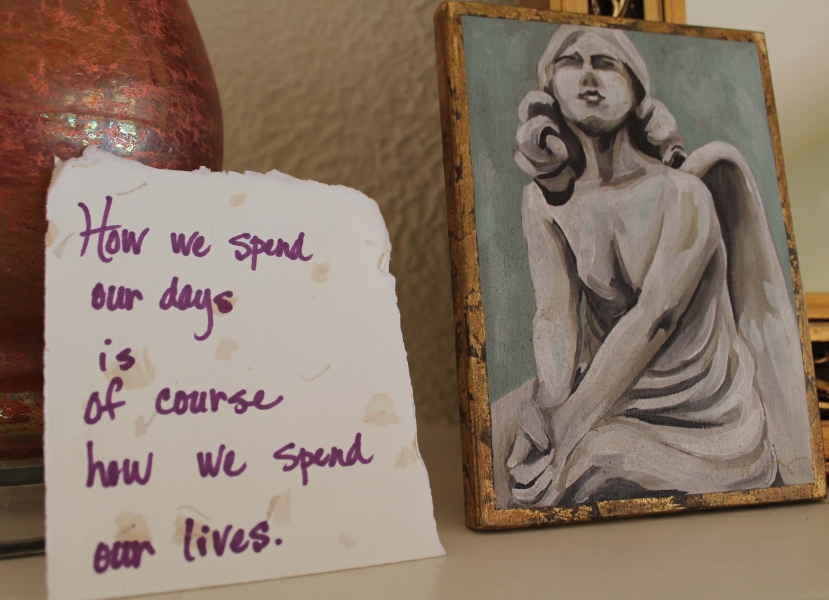 How we spend
our days
is
of course
how we spend
our lives.